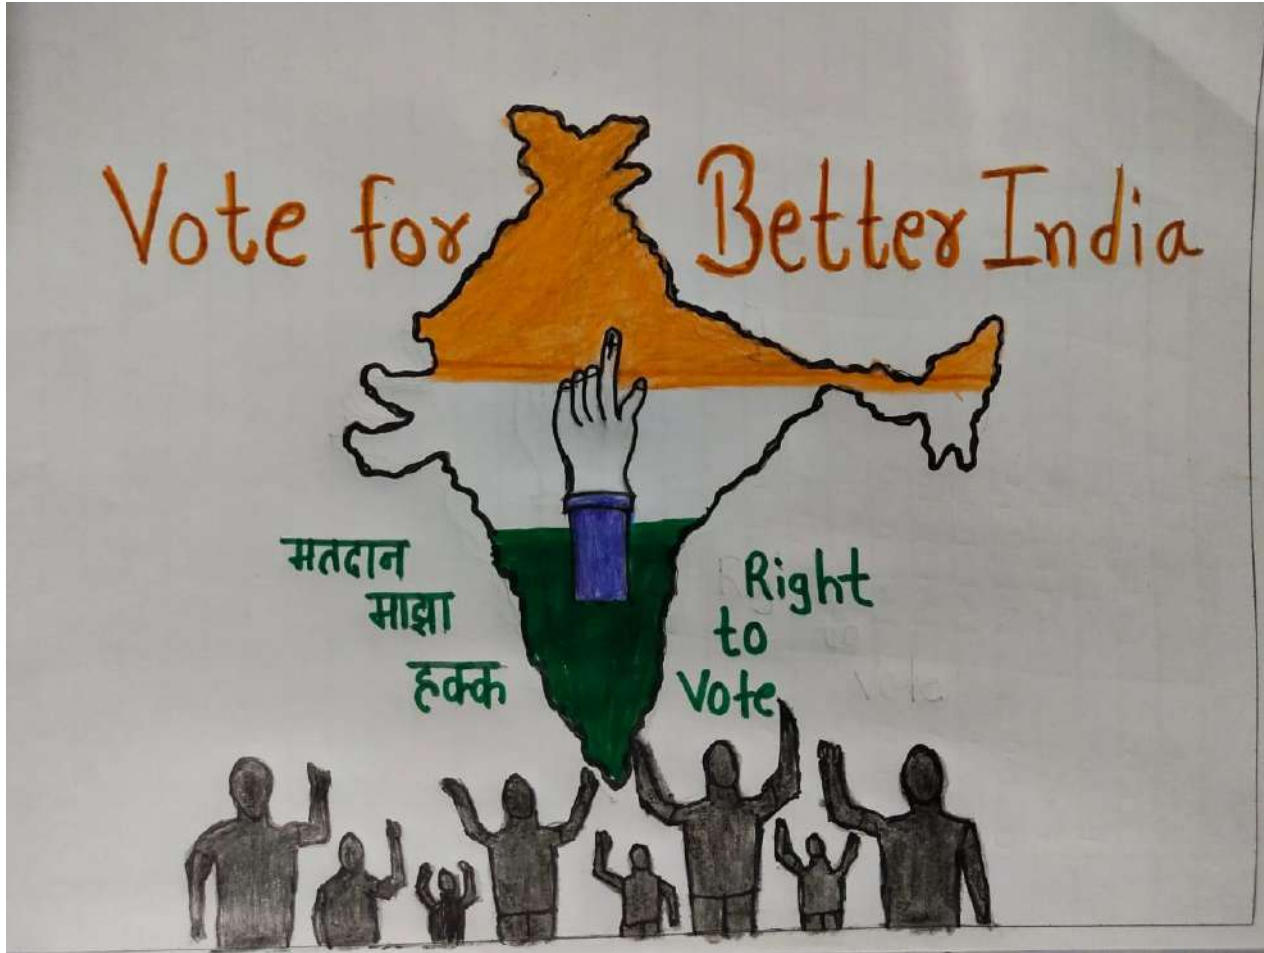 Vote for Better India
मतदान
माझा
हक्क
Right
to
Vote